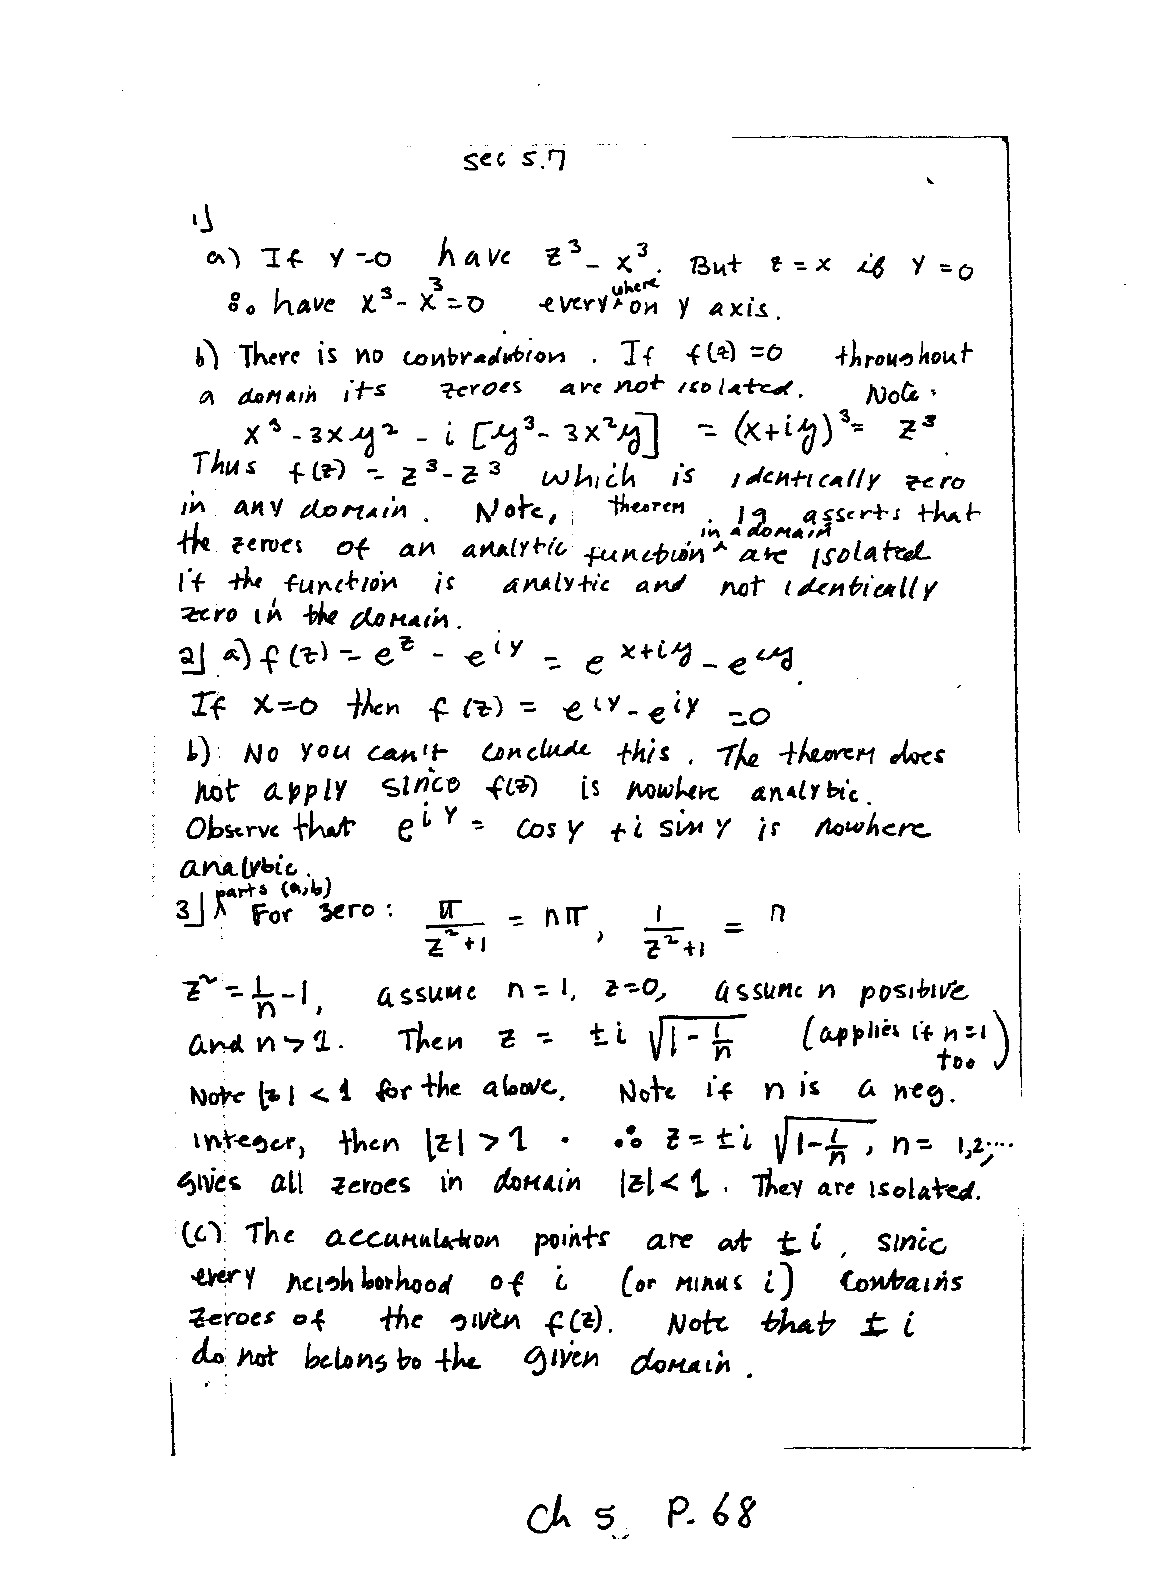 sec 5.7
1]
a) If y=0 have z³ - x³. But z = x if y = 0
∴ have x³ - x³ = 0 everywhere on y axis.
b) There is no contradiction. If f(z) = 0 throughout
a domain its zeroes are not isolated. Note:
x³ - 3xy² - i [y³ - 3x²y] = (x+iy)³ = z³
Thus f(z) = z³ - z³ which is identically zero
in any domain. Note, theorem 19 asserts that
the zeroes of an analytic function in a domain are isolated
if the function is analytic and not identically
zero in the domain.
2] a) f(z) = e^z - e^{iy} = e^{x+iy} - e^{iy}
If x=0 then f(z) = e^{iy} - e^{iy} = 0
b) No you can't conclude this. The theorem does
not apply since f(z) is nowhere analytic.
Observe that e^{iy} = cos y + i sin y is nowhere
analytic.
3] parts (a,b) For zero: π/(z²+1) = nπ, 1/(z²+1) = n
z² = 1/n - 1, assume n = 1, z=0, assume n positive
and n > 1. Then z = ± i √(1 - 1/n) (applies if n=1 too)
Note |z| < 1 for the above. Note if n is a neg.
integer, then |z| > 1. ∴ z = ± i √(1 - 1/n), n = 1,2,...
gives all zeroes in domain |z| < 1. They are isolated.
(c) The accumulation points are at ± i, since
every neighborhood of i (or minus i) contains
zeroes of the given f(z). Note that ± i
do not belong to the given domain.
Ch 5 P. 68